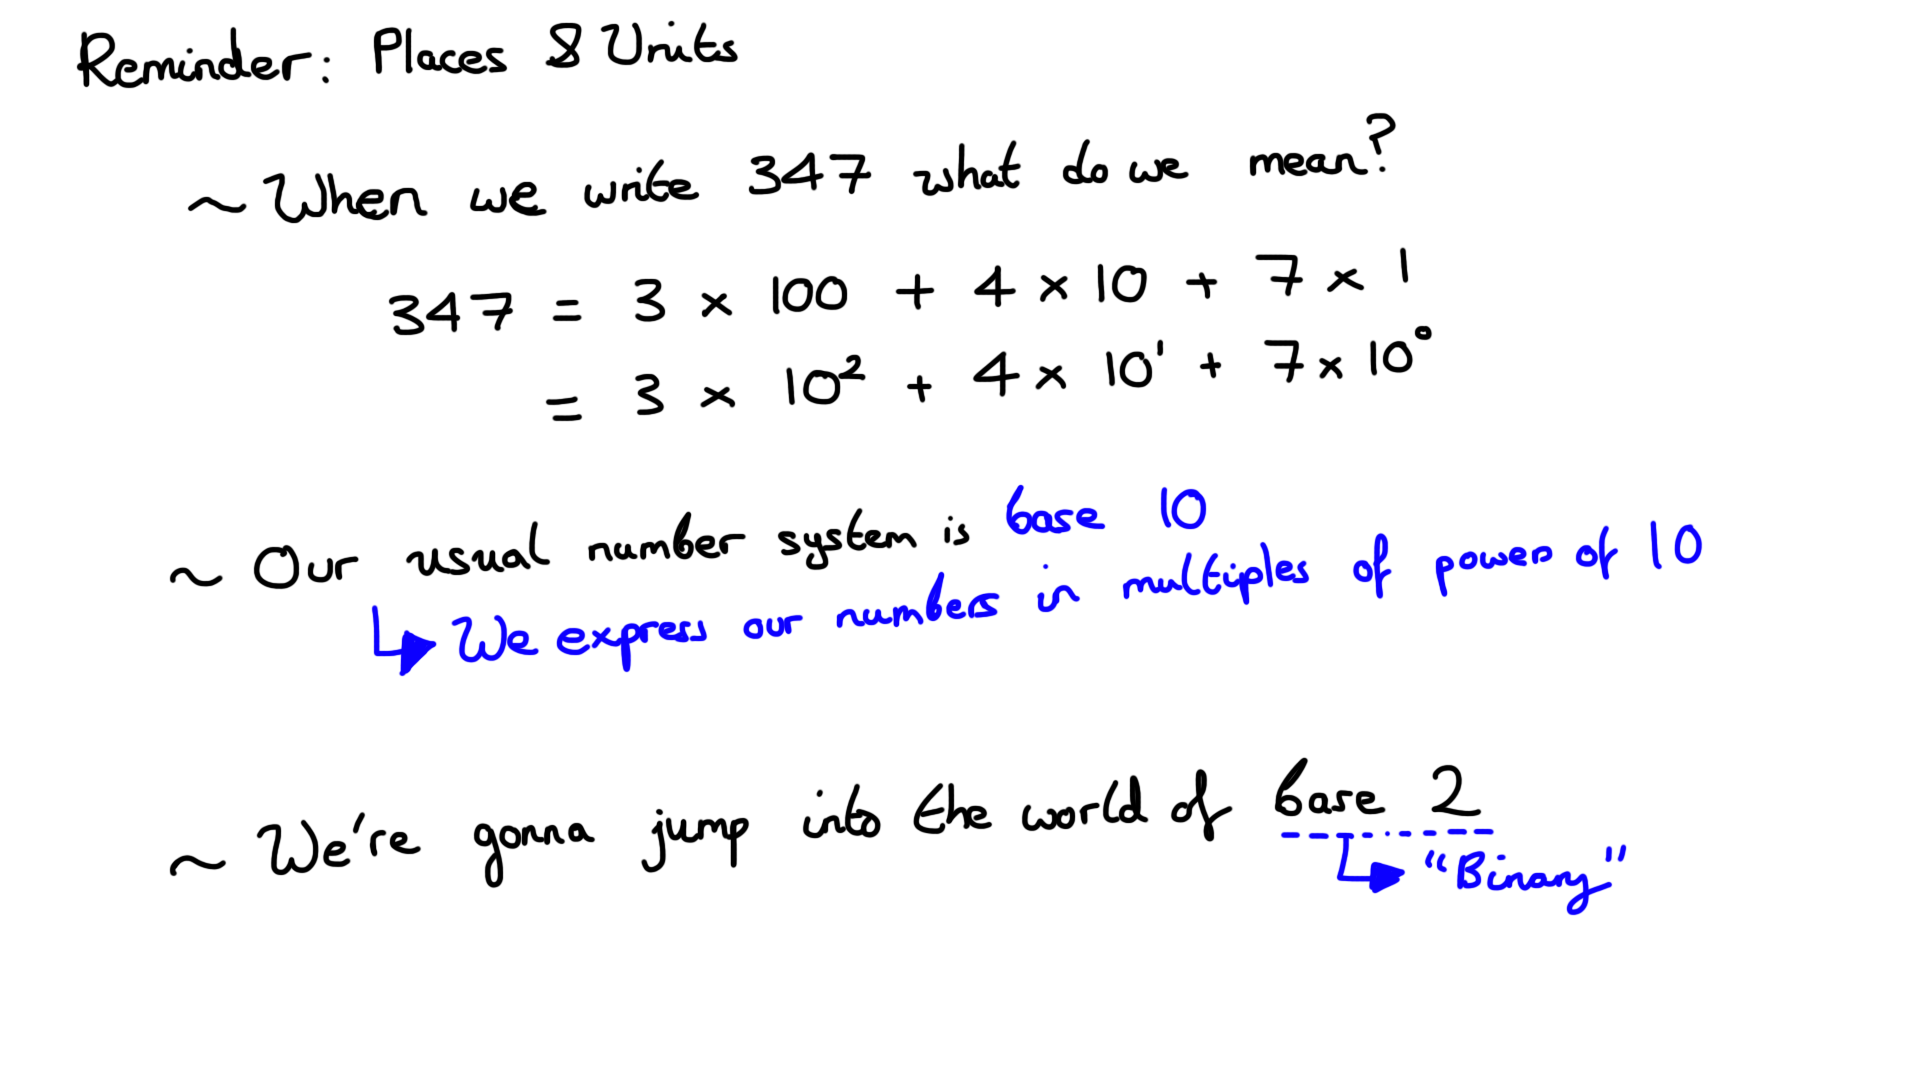 Reminder: Places & Units
~ When we write 347 what do we mean?
347 = 3 × 100 + 4 × 10 + 7 × 1
= 3 × 10² + 4 × 10¹ + 7 × 10⁰
~ Our usual number system is base 10
We express our numbers in multiples of powers of 10
~ We're gonna jump into the world of base 2
"Binary"